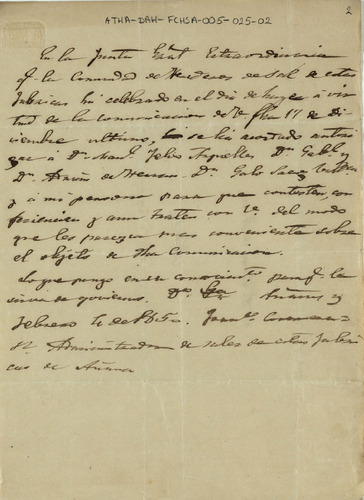 ATHA-DAH-FCHSA-005-025-02
2
En la Junta Gral Extraordinaria
q.e la Comunidad de Herederos de Sal de estas
Fabricas ha celebrado en el dia de hoy a vir
tud de la comunicacion de Vd fha 17 de Di
ciembre ultimo, se ha acordado autori
zar a Dn Man.l Felix Arguelles Dn
Dn de Herran Dn Pablo Saez
y a mi persona para que contesten, con
ferencien y aun traten con Vd del modo
que les parezca mas conveniente sobre
el objeto de dha Comunicacion
Lo que pongo en su conocim.to para q.e le
sirva de govierno. Añana y
Febrero
Administrador de sales de estas Fabri
cas de Añana